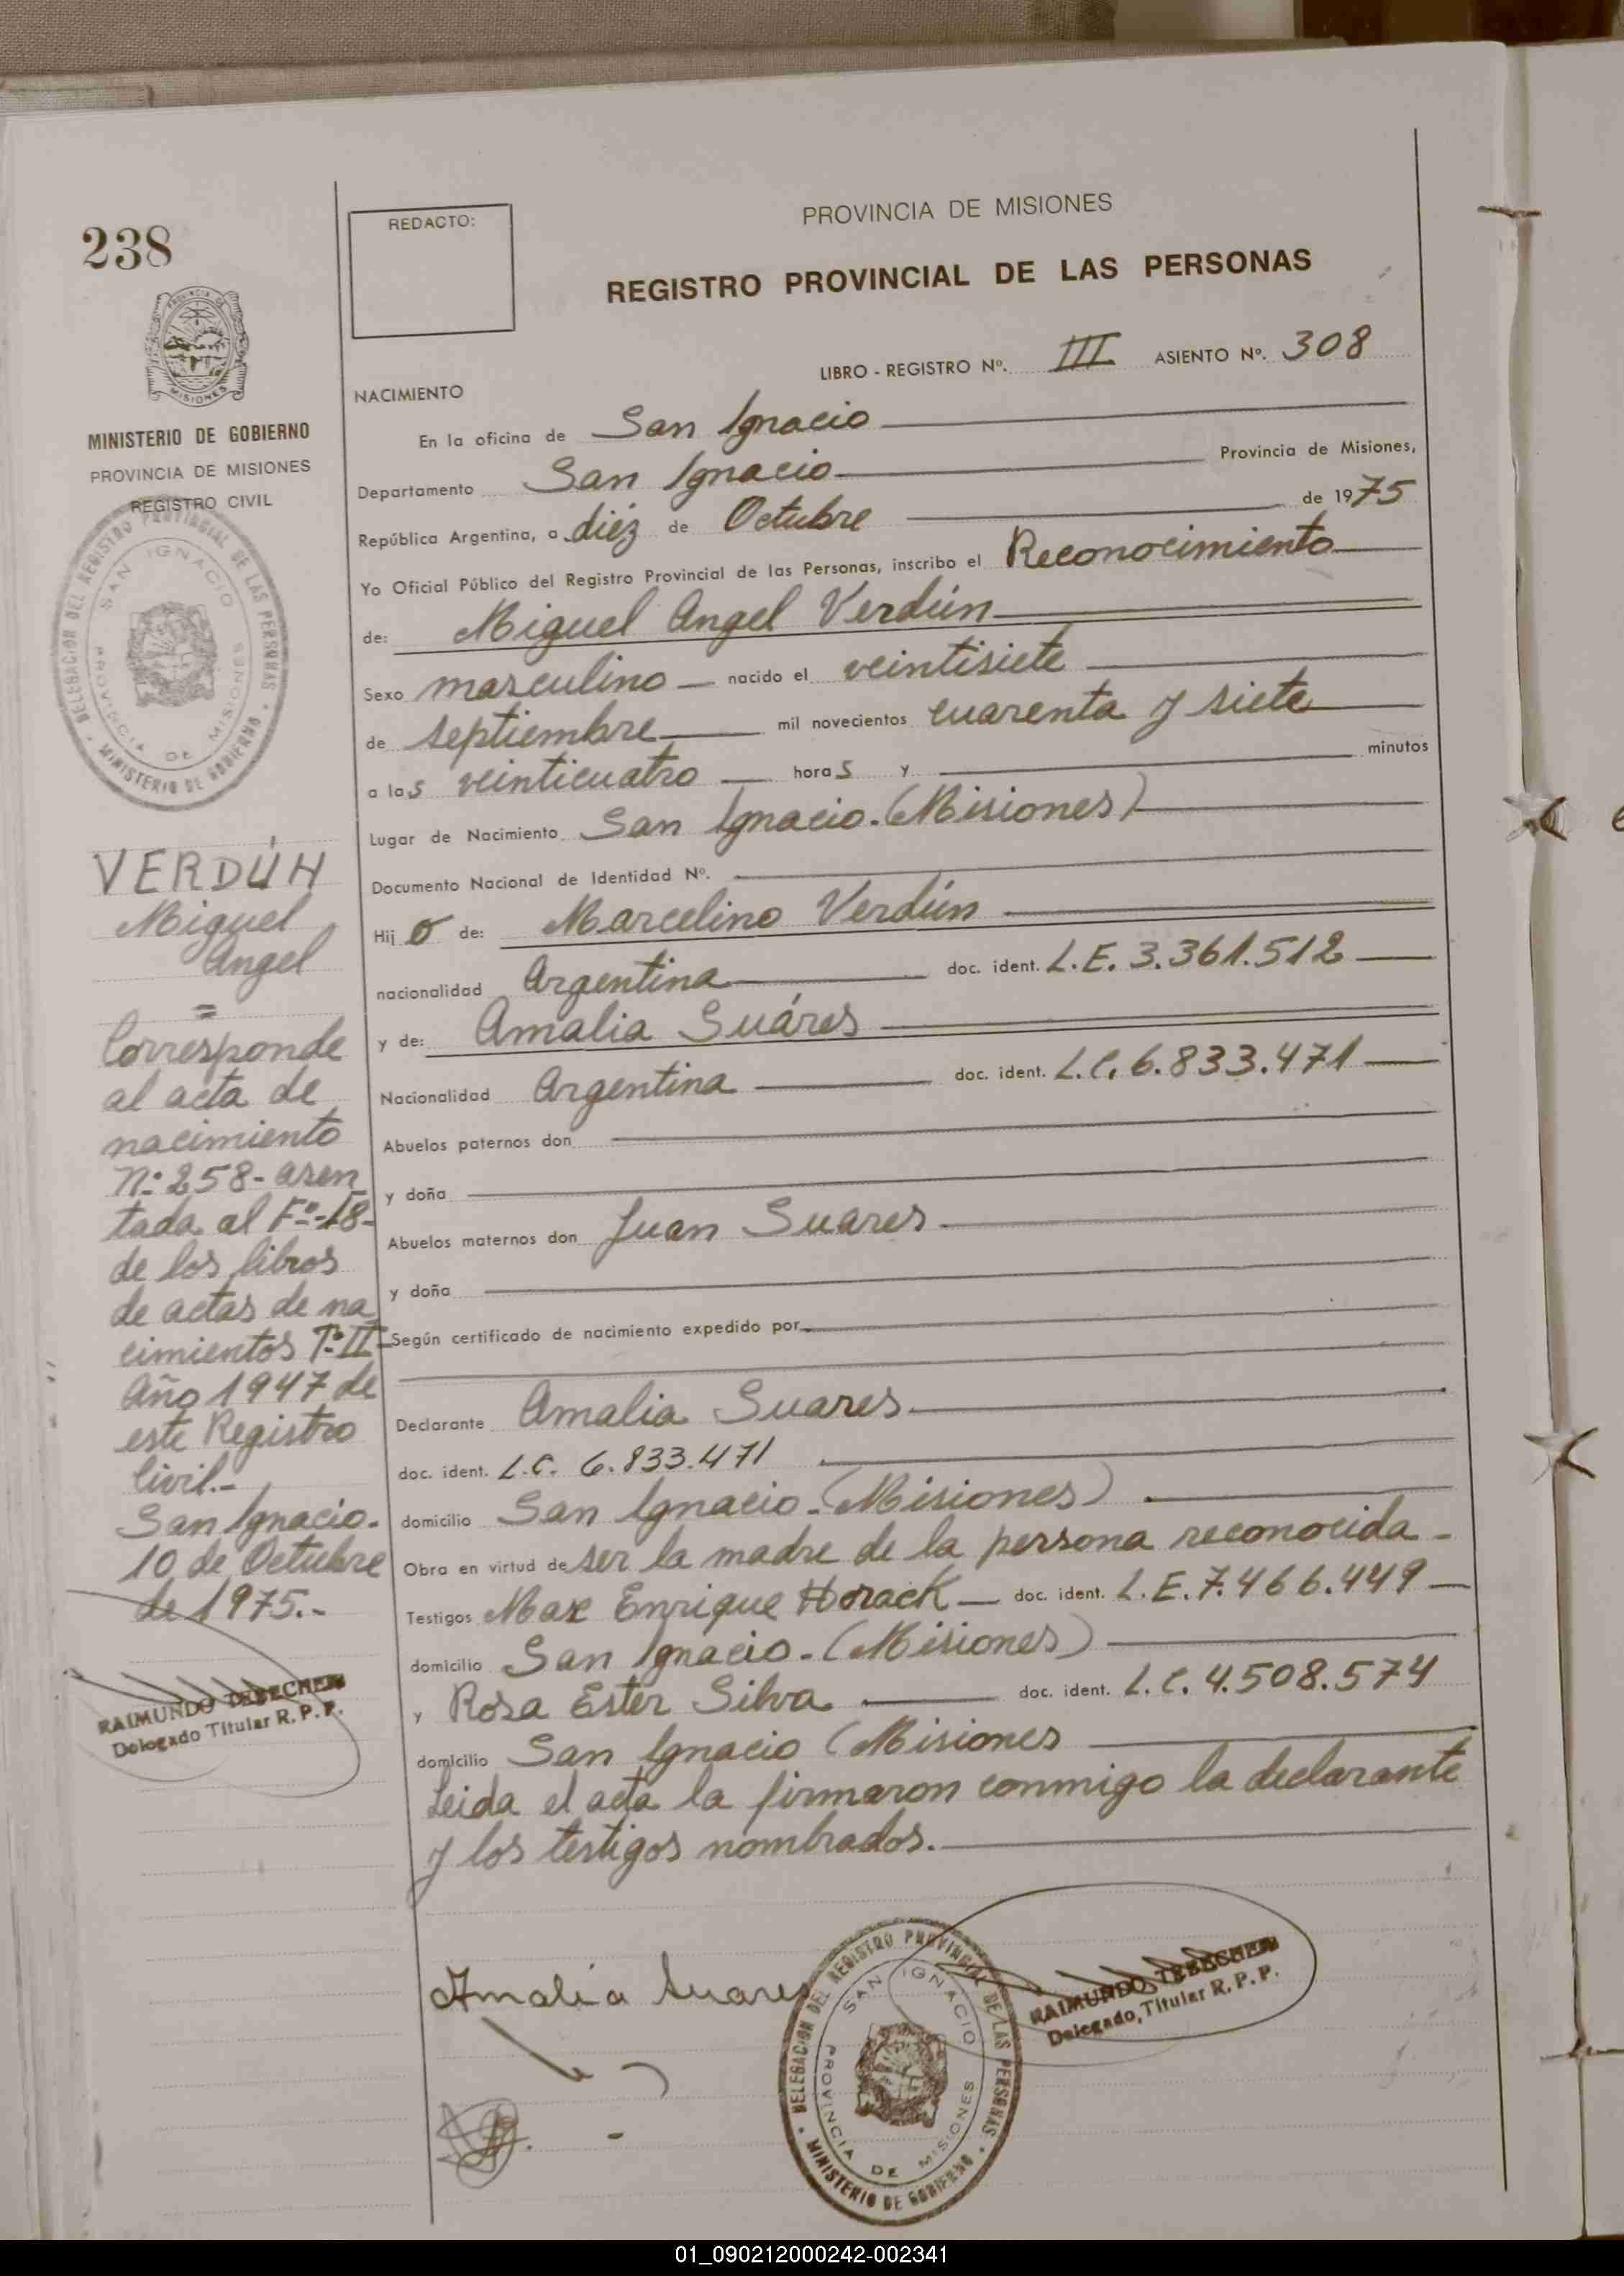 238
PROVINCIA DE MISIONES
MINISTERIO DE GOBIERNO
PROVINCIA DE MISIONES
REGISTRO CIVIL
DELEGACION DEL REGISTRO PROVINCIAL DE LAS PERSONAS
SAN IGNACIO
PROVINCIA DE MISIONES
MINISTERIO DE GOBIERNO
VERDÚN
Miguel
Angel
=
Corresponde
al acta de
nacimiento
Nº 258- asen
tada al Fº-18-
de los libros
de actas de na
cimientos Tº II-
Año 1947 de
este Registro
Civil.-
San Ignacio.
10 de Octubre
de 1975.-
RAIMUNDO
Delegado Titular R. P. P.
REDACTO:
PROVINCIA DE MISIONES
REGISTRO PROVINCIAL DE LAS PERSONAS
LIBRO - REGISTRO Nº. III ASIENTO Nº. 308
NACIMIENTO
En la oficina de San Ignacio
Departamento San Ignacio Provincia de Misiones,
República Argentina, a diéz de Octubre de 1975
Yo Oficial Público del Registro Provincial de las Personas, inscribo el Reconocimiento
de: Miguel Angel Verdún
Sexo masculino nacido el veintisiete
de septiembre mil novecientos cuarenta y siete
a las veinticuatro horas y minutos
Lugar de Nacimiento San Ignacio. (Misiones)
Documento Nacional de Identidad Nº.
Hijo de: Marcelino Verdún
nacionalidad Argentina doc. ident. L.E. 3.361.512
y de: Amalia Suáres
Nacionalidad Argentina doc. ident. L.C. 6.833.471
Abuelos paternos don
y doña
Abuelos maternos don Juan Suares
y doña
Según certificado de nacimiento expedido por
Declarante Amalia Suares
doc. ident. L.C. 6.833.471
domicilio San Ignacio. (Misiones)
Obra en virtud de ser la madre de la persona reconocida-
Testigos Max Enrique Horack doc. ident. L.E. 7.466.449
domicilio San Ignacio. (Misiones)
y Rosa Ester Silva doc. ident. L.C. 4.508.574
domicilio San Ignacio (Misiones
Leida el acta la firmaron conmigo la declarante
y los testigos nombrados.
Amalia Suares
DELEGACION DEL REGISTRO PROVINCIAL DE LAS PERSONAS
SAN IGNACIO
PROVINCIA DE MISIONES
MINISTERIO DE GOBIERNO
RAIMUNDO
Delegado Titular R. P. P.
01_090212000242-002341